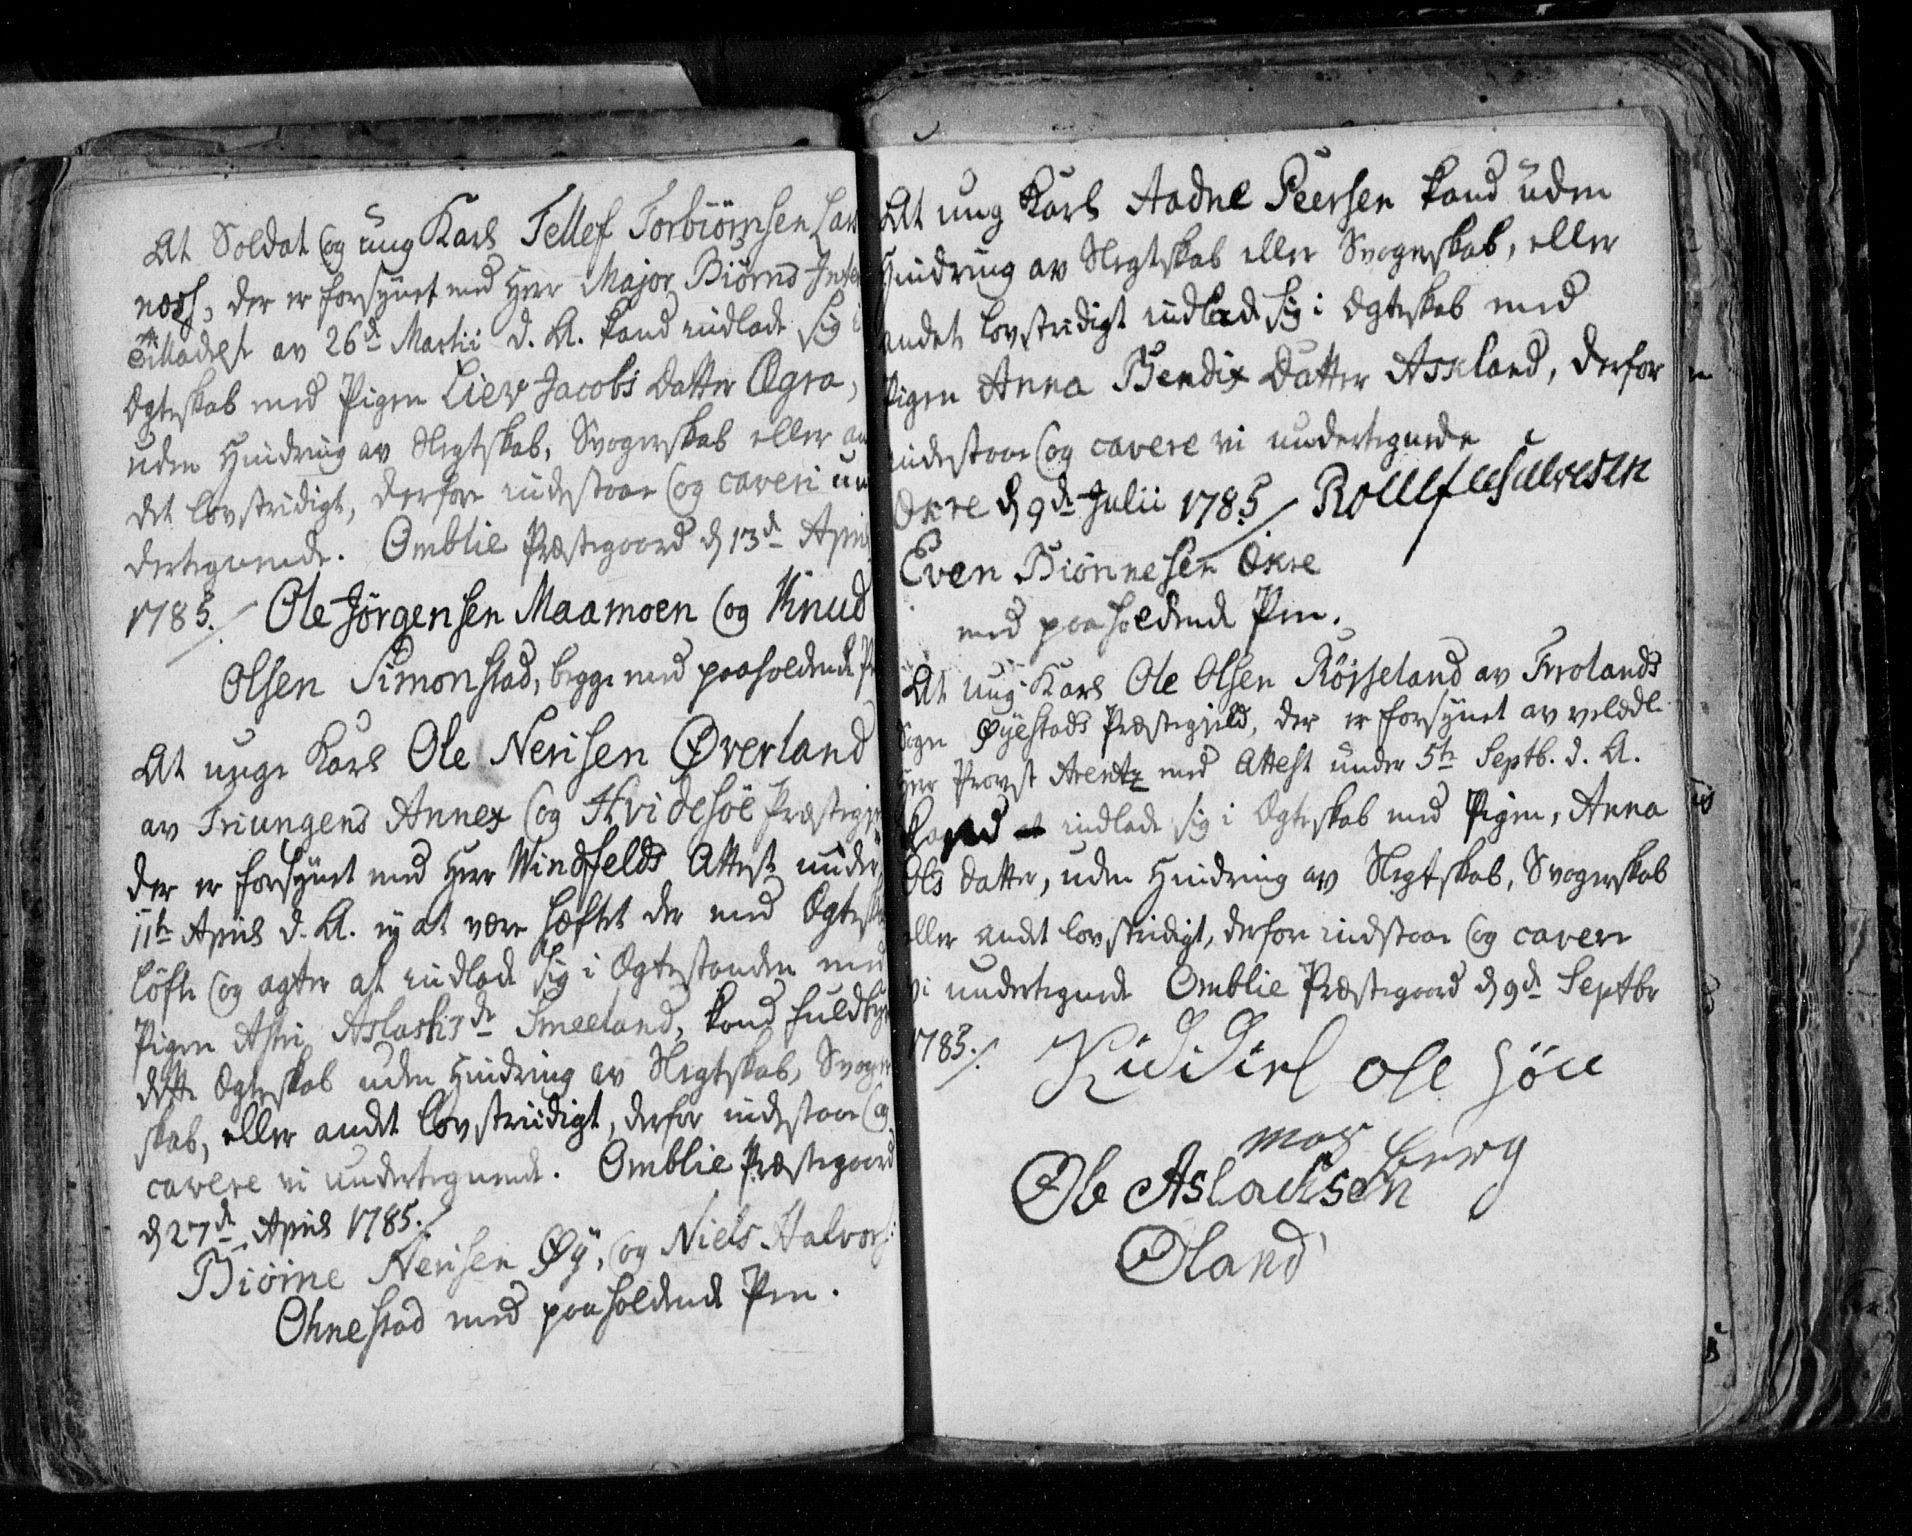 At Soldat og ung Karl Tellef Torbiörnsen Lax
næss, der er forsynet med Herr Major Biørns
Attest av 26de Martii d. A. kand indlade sig i
Ægteskab med Pigen Liev Jacobs Datter Øgra,
uden Hindring av Slegtskab, Svogerskab eller an
det lovstridigt, derfore indestaar og caveri un
dertegnende. Omblie Præstegaard d 13de April
1785. Ole Jörgensen Maamoen og Knud
Olsen Simonstad, begge med paaholdende
At unge Karl Ole Nerisen Øverland
av Triungens Annex og Hvidesøe Præstegje
der er forsynet med Herr Windfelds Attest under
11te April d. A. ey at være hæftet der med Ægtesk
løfte og agter at indlade sig i Ægtestanden med
Pigen Astri Aslachsdr Smeeland, kand fuldbyr
dette Ægteskab uden Hindring av Slegtskab, Svoger
skab, eller andet lovstriidigt, derfor indestaar og
cavere vi undertegnende. Omblie Præstegaard
d 27de April 1785.
Biörne Nerisen Øÿ, og Niels Halvors:
Ohnestad med paaholdende Pen.
At ung Karl Aadne Peersen kand uden
Hindring av Slegtskab eller Svogerskab, eller
andet lovstridigt indlade sig i Ægteskab med
Pigen Anna Bendix Datter Askland, derfor
indestaar og cavere vi undertegnede
Økre d 9de Julii 1785
Even Biönnesen Økre
med paaholdende Pen.
At ung Karl Ole Olsen Røisseland av Frolands
Sogn Øyestads Præstegield, der er forsynet av velædl.
Herr Provst Arentz med Attest under 5te Septb. d. A.
kand indlade sig i Ægteskab med Pigen, Anna
Ols datter, uden Hindring av Slegtskab, Svogerskab
eller andet lovstridigt, derfor indstaar og cavere
vi undertegnede Omblie Præstegaard d 9de Septbr
1785.
Ole Aslachsen
Øland